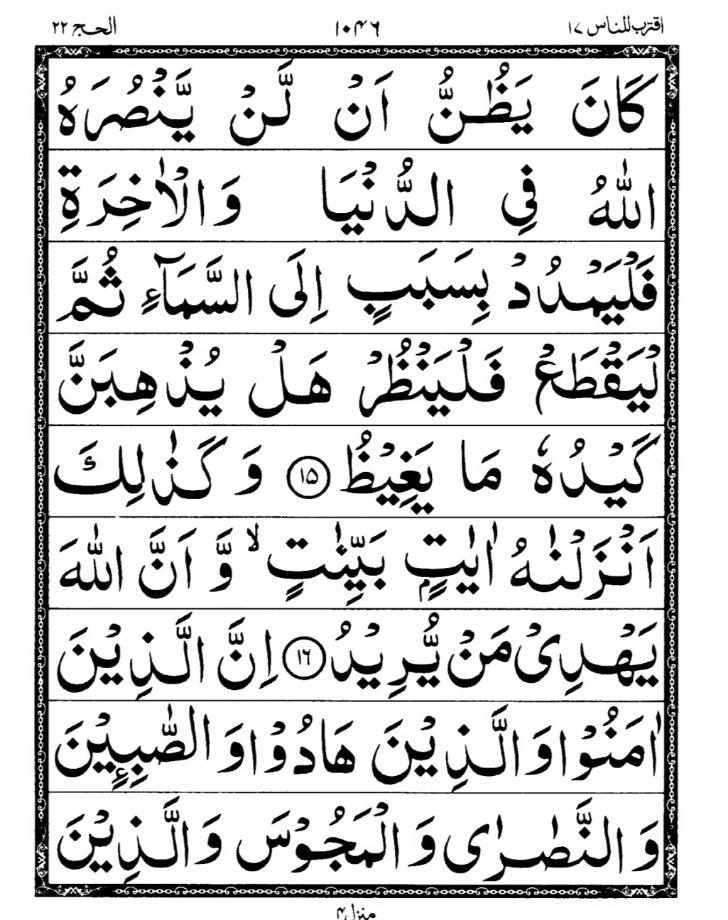 اقترب للناس ۱۷ ۱۰۴۶ الحج ۲۲
كَانَ يَظُنُّ اَنْ لَّنْ يَّنْصُرَهُ
اللّٰهُ فِى الدُّنْيَا وَالْاٰخِرَةِ
فَلْيَمْدُدْ بِسَبَبٍ اِلَى السَّمَآءِ ثُمَّ
لْيَقْطَعْ فَلْيَنْظُرْ هَلْ يُذْهِبَنَّ
كَيْدُهٗ مَا يَغِيْظُ ۱۵ وَ كَذٰلِكَ
اَنْزَلْنٰهُ اٰيٰتٍۭ بَيِّنٰتٍ ۙ وَّ اَنَّ اللّٰهَ
يَهْدِىْ مَنْ يُّرِيْدُ ۱۶ اِنَّ الَّذِيْنَ
اٰمَنُوْا وَالَّذِيْنَ هَادُوْا وَ الصّٰبِـِٕيْنَ
وَ النَّصٰرٰى وَ الْمَجُوْسَ وَ الَّذِيْنَ
منزل ۴